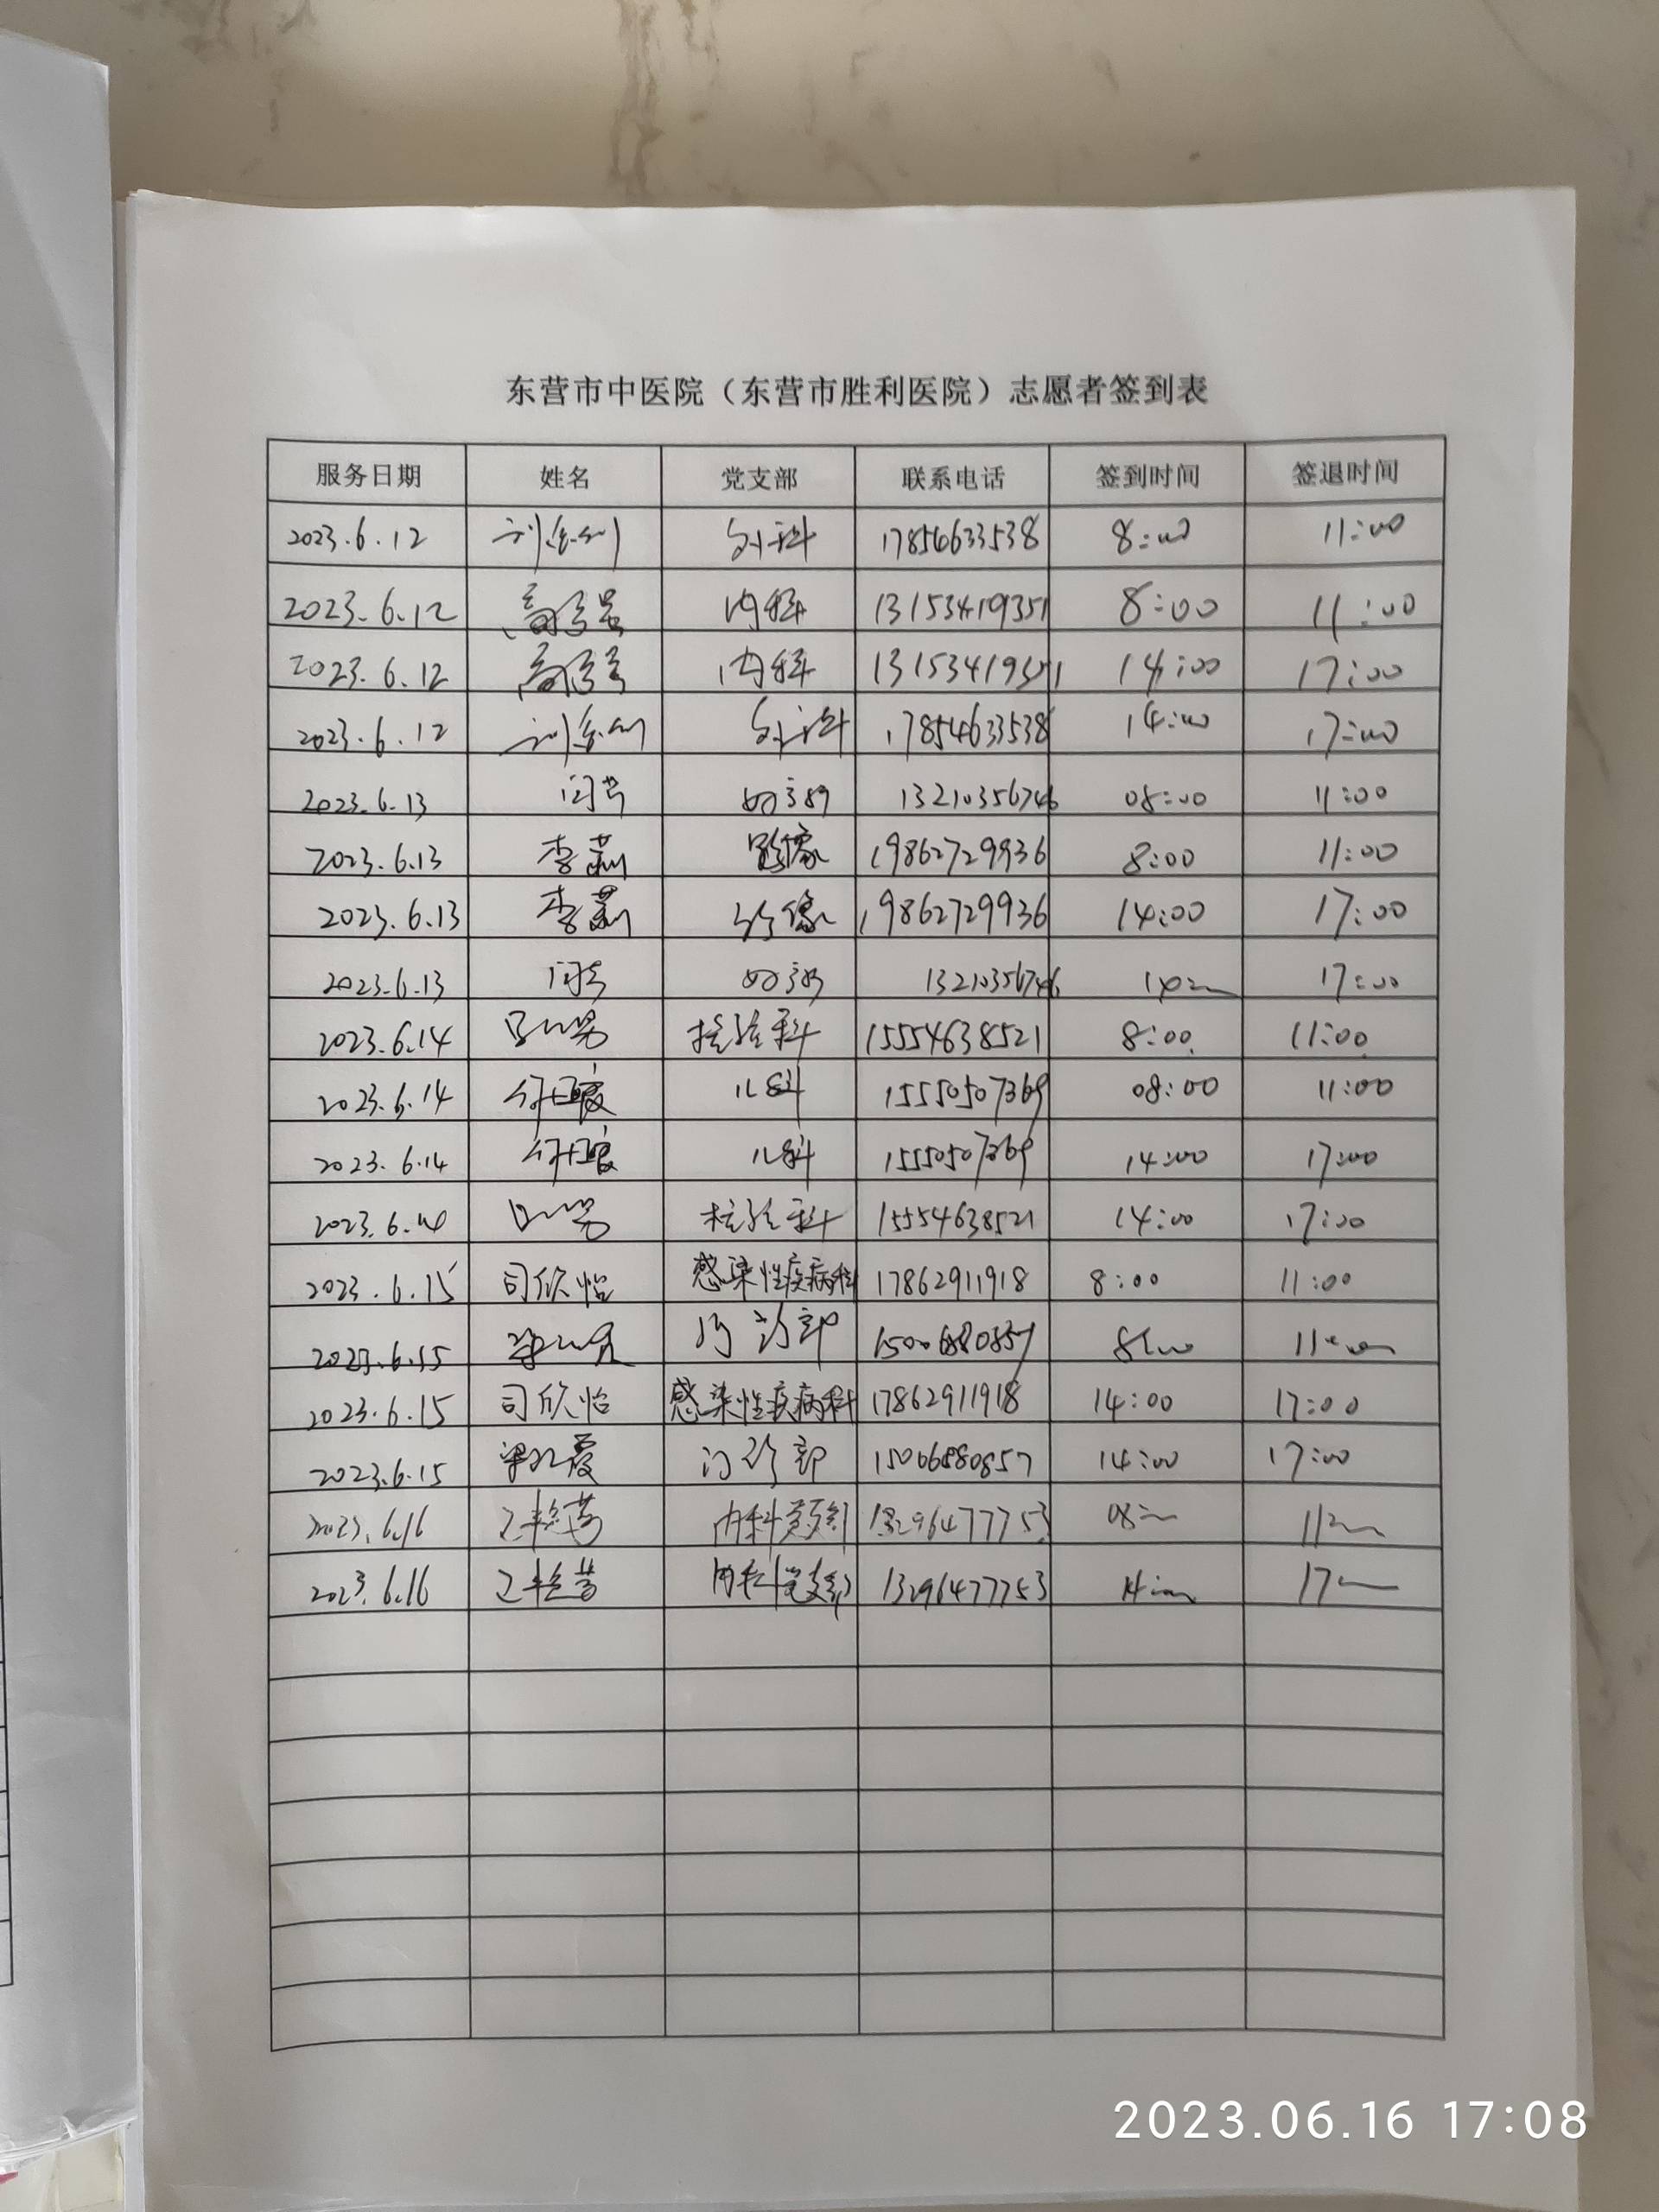 东营市中医院（东营市胜利医院）志愿者签到表
服务日期 姓名 党支部 联系电话 签到时间 签退时间
2023.6.12 外科 17854633538 8:00 11:00
2023.6.12 内科 13153419351 8:00 11:00
2023.6.12 内科 14:00 17:00
2023.6.12 外科 17854633538 14:00 17:00
2023.6.13 13210356746 08:00 11:00
2023.6.13 李莉 影像 19862729936 8:00 11:00
2023.6.13 李莉 影像 19862729936 14:00 17:00
2023.6.13 13210356746 17:00
2023.6.14 检验科 15554638521 8:00 11:00
2023.6.14 儿科 15550507369 08:00 11:00
2023.6.14 儿科 15550507369 14:00 17:00
2023.6.14 检验科 15554638521 14:00 17:00
2023.6.15 司欣怡 感染性疾病科 17862911918 8:00 11:00
2023.6.15 门诊部 8:00 11:00
2023.6.15 司欣怡 感染性疾病科 17862911918 14:00 17:00
2023.6.15 门诊部 15006880857 14:00 17:00
2023.6.16 内科党支部 13296477753
2023.6.16 内科党支部 13296477753 14:00
2023.06.16 17:08